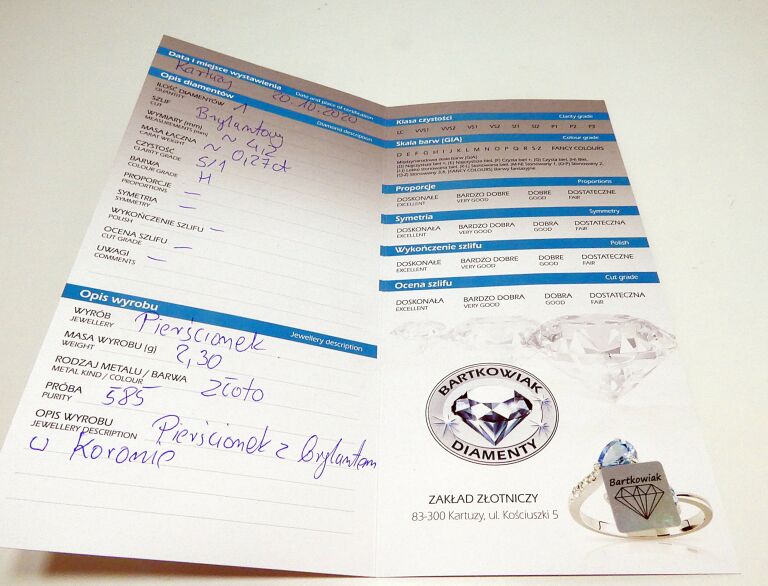 Data i miejsce wystawienia Date and place of certification
Kartuzy 20.10.2020
Opis diamentów Diamond description
ILOŚĆ DIAMENTÓW 1
QUANTITY
SZLIF Brylantowy
CUT
WYMIARY (mm) ~ 4,2
MEASUREMENTS (mm)
MASA ŁĄCZNA ~ 0,27ct
CARAT WEIGHT
CZYSTOŚĆ SI1
CLARITY GRADE
BARWA H
COLOUR GRADE
PROPORCJE —
PROPORTIONS
SYMETRIA —
SYMMETRY
WYKOŃCZENIE SZLIFU —
POLISH
OCENA SZLIFU —
CUT GRADE
UWAGI —
COMMENTS
Opis wyrobu Jewellery description
WYRÓB Pierścionek
JEWELLERY
MASA WYROBU (g) 2,30
WEIGHT
RODZAJ METALU / BARWA Złoto
METAL KIND / COLOUR
PRÓBA 585
PURITY
OPIS WYROBU Pierścionek z brylantem
JEWELLERY DESCRIPTION
w Koronie
Klasa czystości Clarity grade
LC VVS1 VVS2 VS1 VS2 SI1 SI2 P1 P2 P3
Skala barw (GIA) Colour grade
D E F G H I J K L M N O P Q R S Z FANCY COLOURS
Międzynarodowa skala barw (GIA)
Proporcje Proportions
DOSKONAŁE BARDZO DOBRE DOBRE DOSTATECZNE
EXCELLENT VERY GOOD GOOD FAIR
Symetria Symmetry
DOSKONAŁA BARDZO DOBRA DOBRA DOSTATECZNA
EXCELLENT VERY GOOD GOOD FAIR
Wykończenie szlifu Polish
DOSKONAŁE BARDZO DOBRE DOBRE DOSTATECZNE
EXCELLENT VERY GOOD GOOD FAIR
Ocena szlifu Cut grade
DOSKONAŁA BARDZO DOBRA DOBRA DOSTATECZNA
EXCELLENT VERY GOOD GOOD FAIR
BARTKOWIAK
DIAMENTY
Bartkowiak
ZAKŁAD ZŁOTNICZY
83-300 Kartuzy, ul. Kościuszki 5